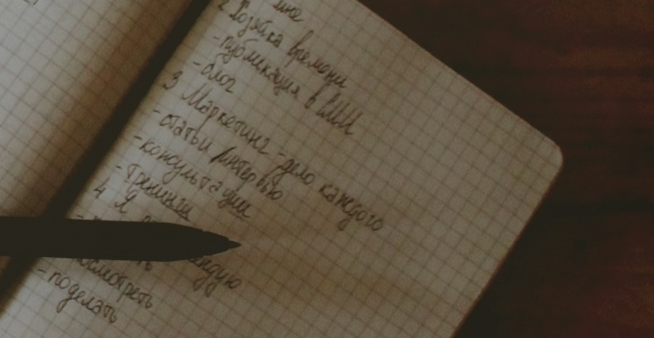 2
времени
- публикация в СМИ
- блог
3 Маркетинг - дело каждого
- статьи интервью
- консультации
- тренинги
4 Я
- посмотреть
- поделать